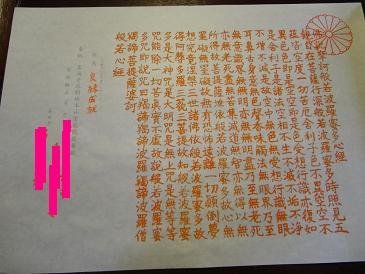 佛説摩訶般若波羅蜜多心経
観自在菩薩行深般若波羅蜜多時照見五
蘊皆空度一切苦厄舎利子色不異空空不
異色色即是空空即是色受想行識亦復如
是舎利子是諸法空相不生不滅不垢不浄
不増不減是故空中無色無受想行識無眼
耳鼻舌身意無色声香味触法無眼界乃至
無意識界無無明亦無無明尽乃至無老死
亦無老死尽無苦集滅道無智亦無得以無
所得故菩提薩埵依般若波羅蜜多故心無
罣礙無罣礙故無有恐怖遠離一切顛倒夢
想究竟涅槃三世諸佛依般若波羅蜜多故
得阿耨多羅三藐三菩提故知般若波羅蜜
多是大神呪是大明呪是無上呪是無等等
呪能除一切苦真実不虚故説般若波羅蜜
多呪即説呪曰羯諦羯諦波羅羯諦波羅僧
羯諦菩提薩婆訶
般若心経